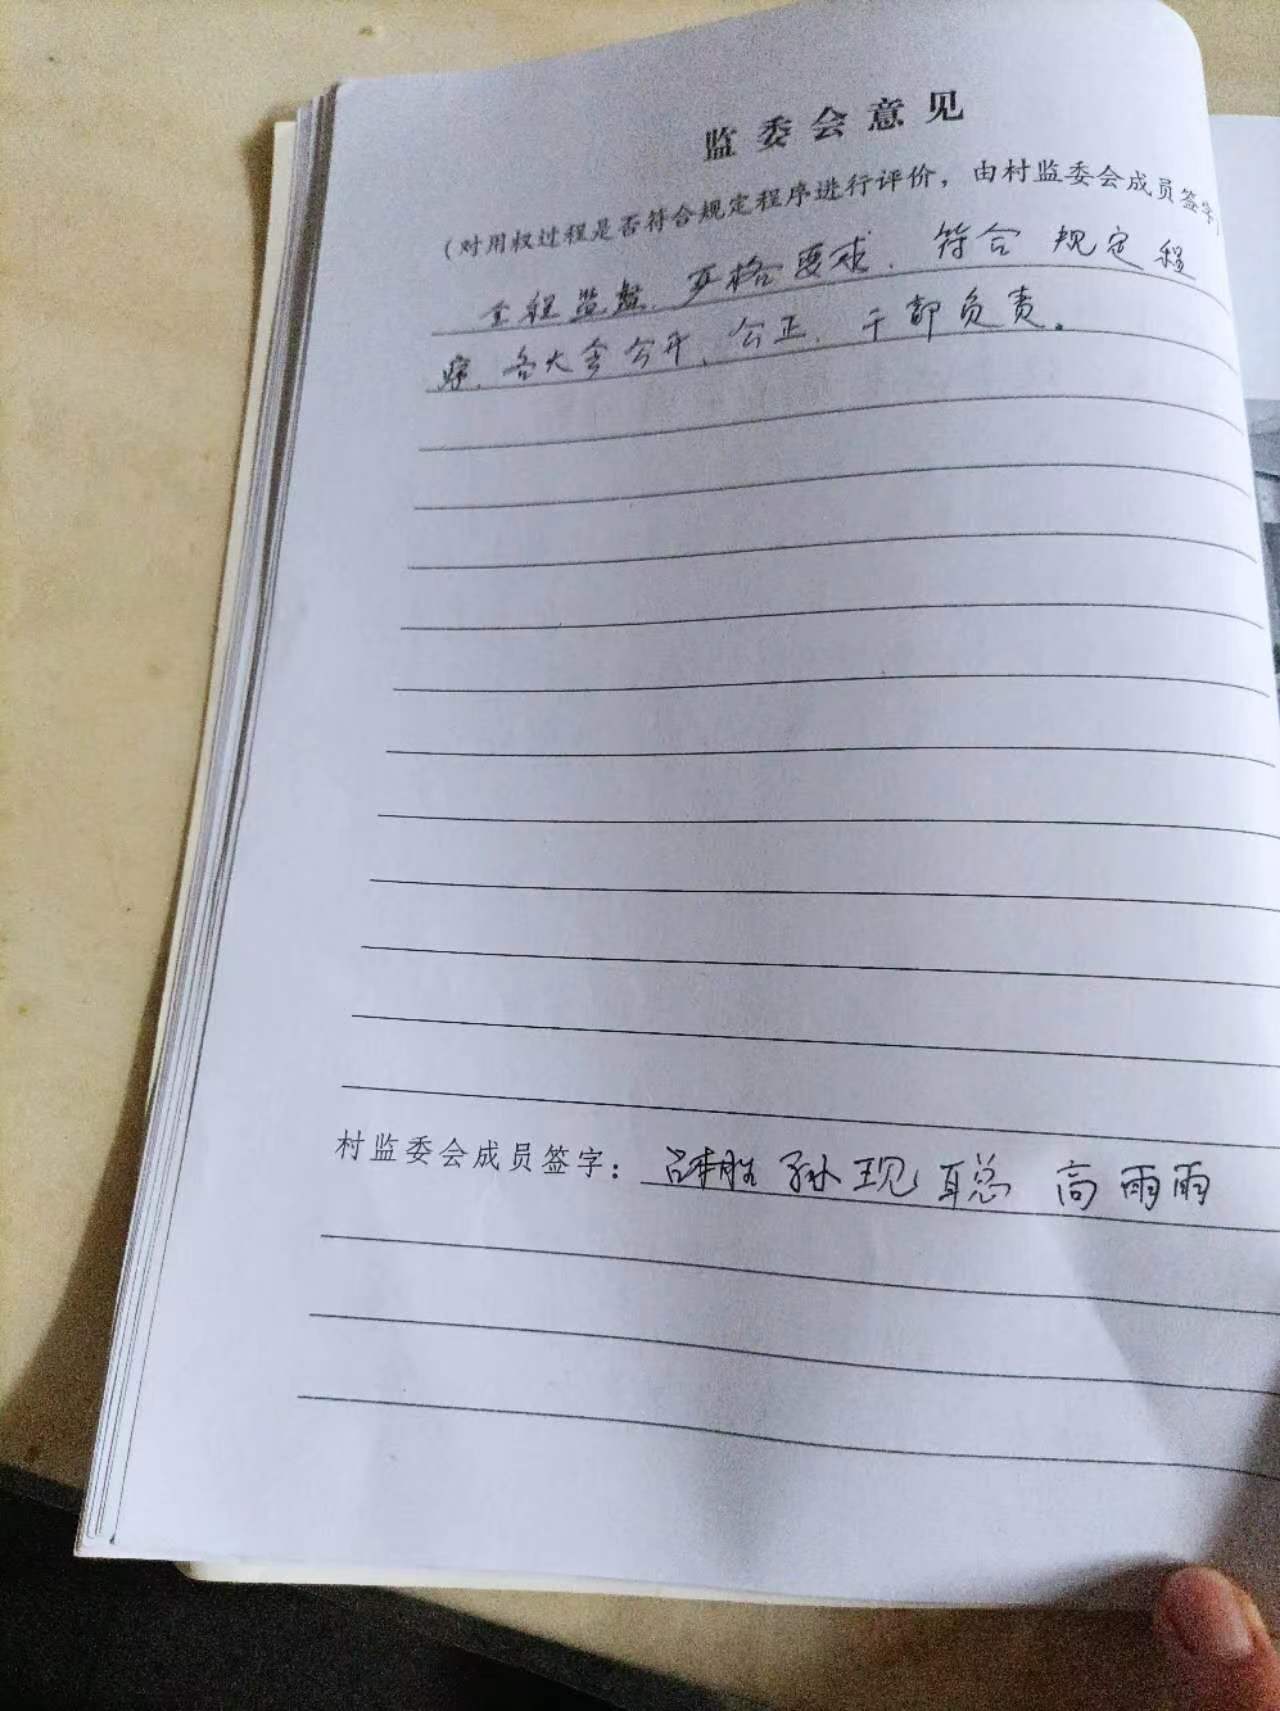 监委会意见
（对用权过程是否符合规定程序进行评价，由村监委会成员签字）
全程监督、严格要求、符合规定程
序、各大会公开、公正、干部负责。
村监委会成员签字：吕 胜 孙现聪 高雨雨